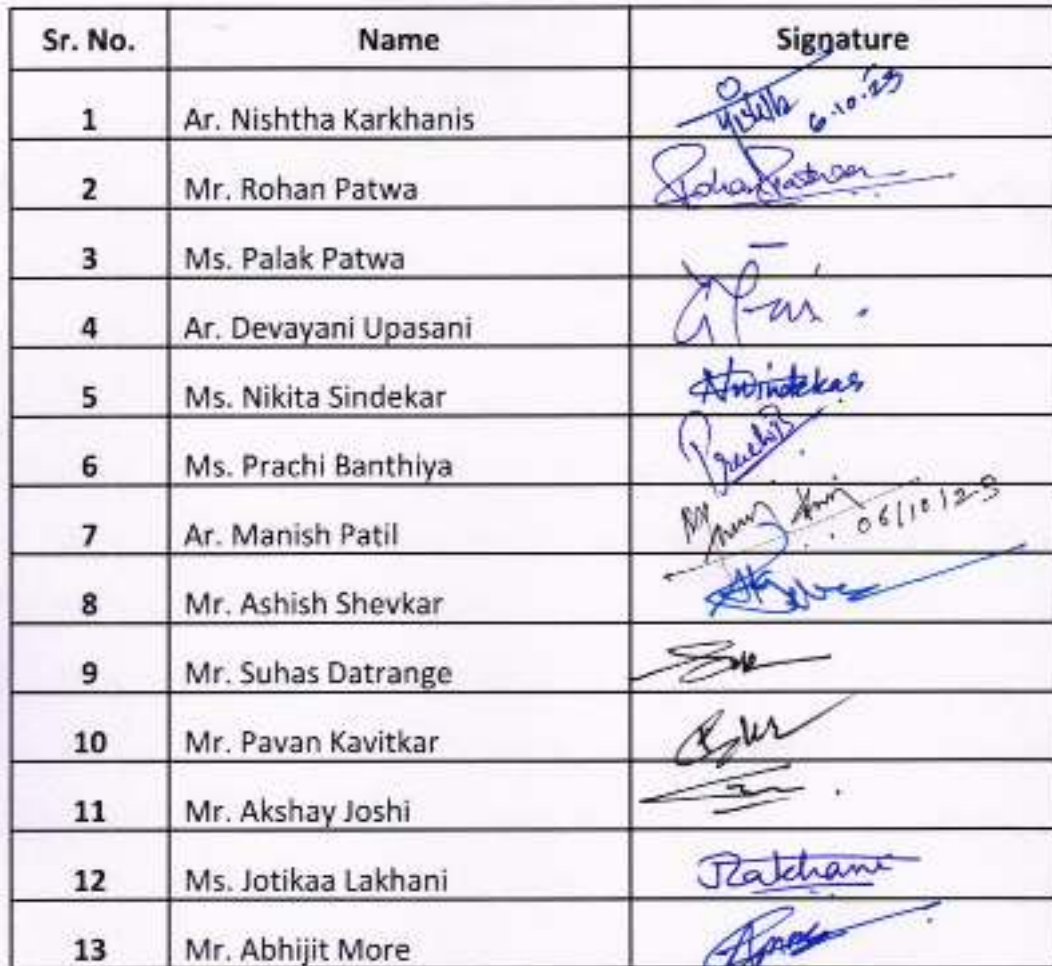 Sr. No. Name Signature
1 Ar. Nishtha Karkhanis 6.10.23
2 Mr. Rohan Patwa
3 Ms. Palak Patwa –
4 Ar. Devayani Upasani
5 Ms. Nikita Sindekar
6 Ms. Prachi Banthiya PrachiB
7 Ar. Manish Patil 06/10/23
8 Mr. Ashish Shevkar
9 Mr. Suhas Datrange
10 Mr. Pavan Kavitkar
11 Mr. Akshay Joshi
12 Ms. Jotikaa Lakhani
13 Mr. Abhijit More